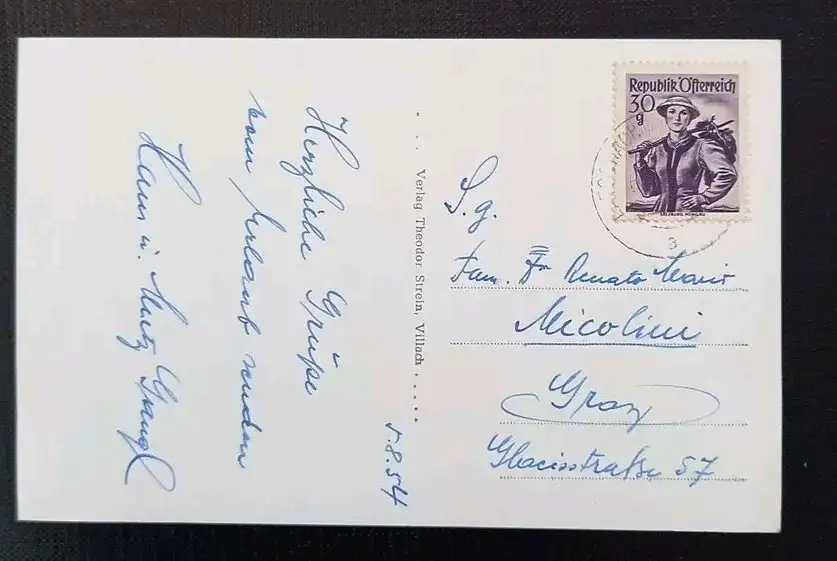 Herzliche Grüße
vom Urlaub senden
Hans u.
5.8.54
Verlag Theodor Strein, Villach
Republik Österreich
30
g
SALZBURG, PONGAU
3
S. g.
Fam. Renato Mario
Nicolini
Graz
Glacisstraße 57